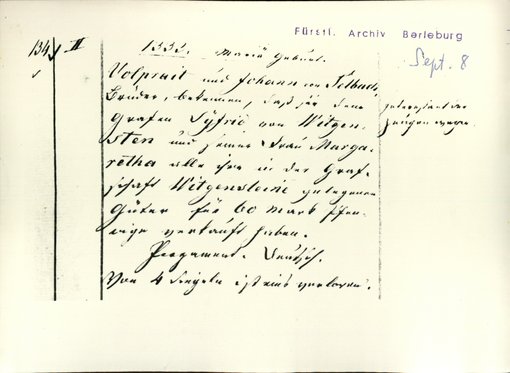 Fürstl. Archiv Berleburg
Sept. 8
134 II
1332. Mariä Geburt.
Volprait und Johann von Selbach,
Brüder, bekennen, daß sie dem
Grafen Syfrid von Witgen-
sten und seiner Frau Marga-
retha alle ihre in der Graf-
schaft Witgensteine gelegenen
Güter für 60 mark Pfen-
nige verkauft haben.
Pergament. Deutsch.
Von 4 Siegeln ist eins verloren.
interessant der
Zeugen wegen.